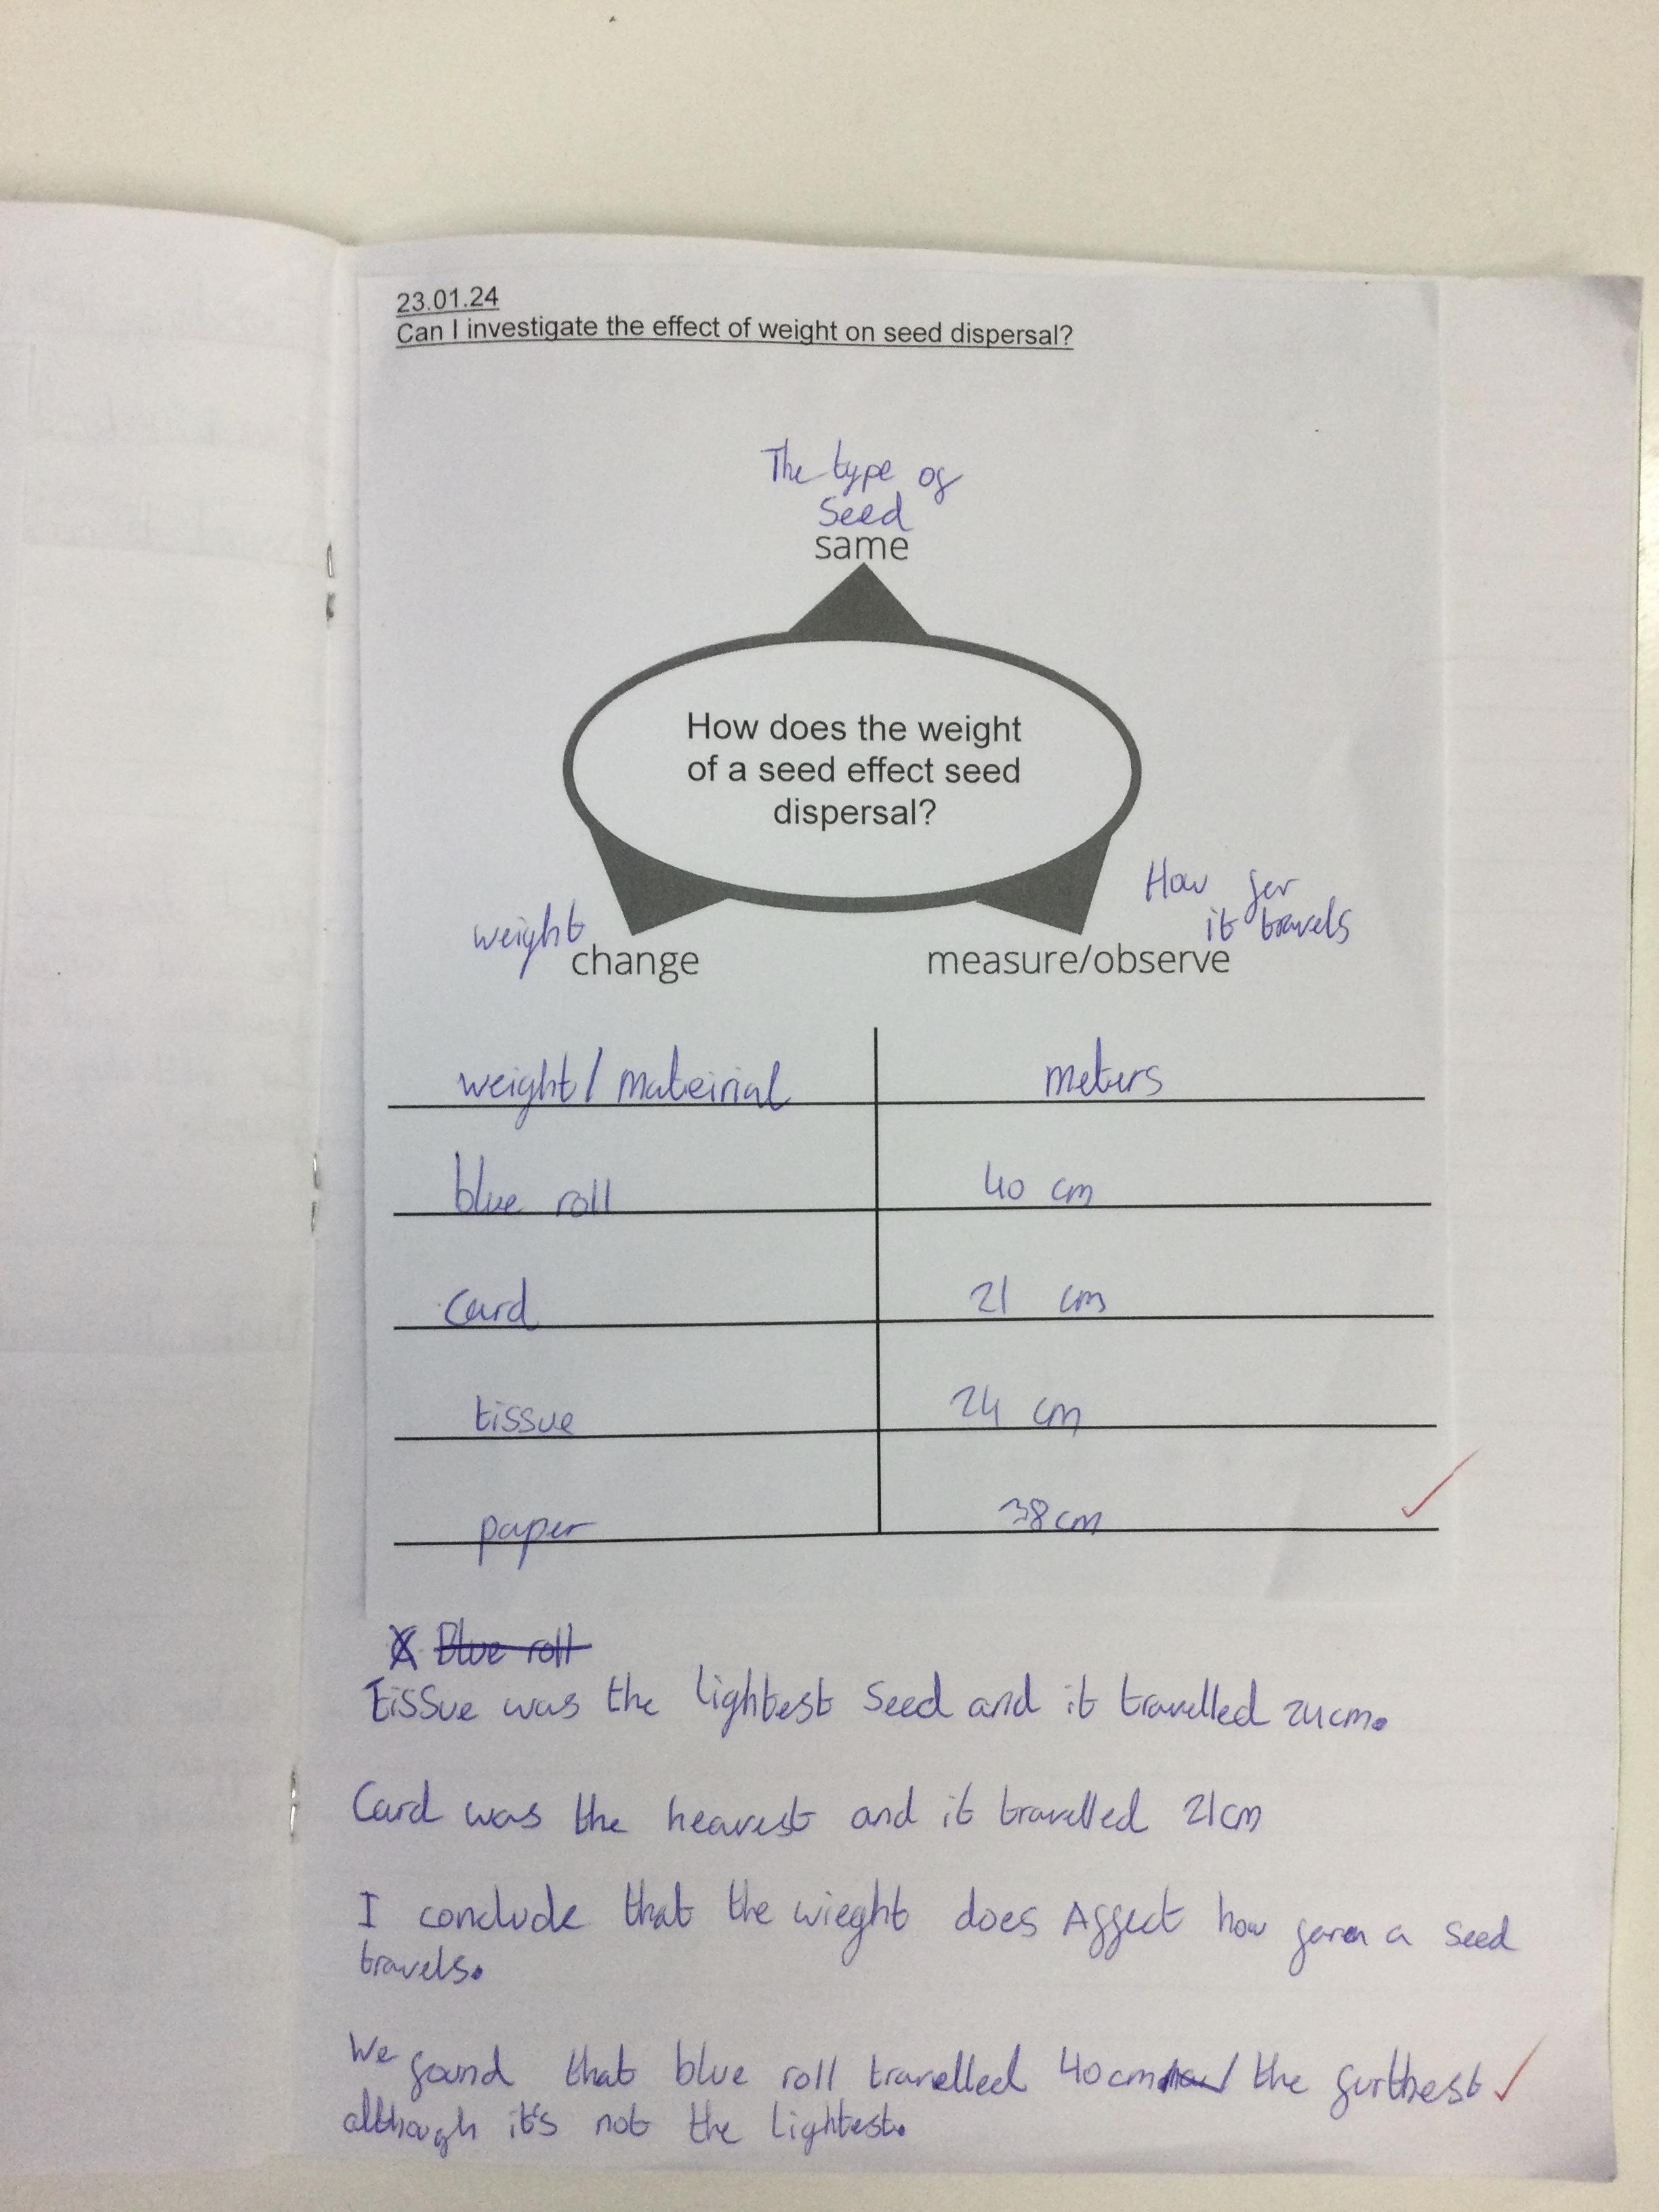 23.01.24
Can I investigate the effect of weight on seed dispersal?
The type of
Seed
same
How does the weight
of a seed effect seed
dispersal?
weight
change
How fer
it travels
measure/observe
weight / mateirial meters
blue roll 40 cm
Card 21 cm
tissue 24 cm
paper 38cm
Blue roll
tissue was the lightest Seed and it travelled 24cm.
Card was the heavest and it travelled 21cm
I conclude that the wieght does Affect how a seed
travels.
We found that blue roll travelled 40cm the furthest
although it's not the lightest.